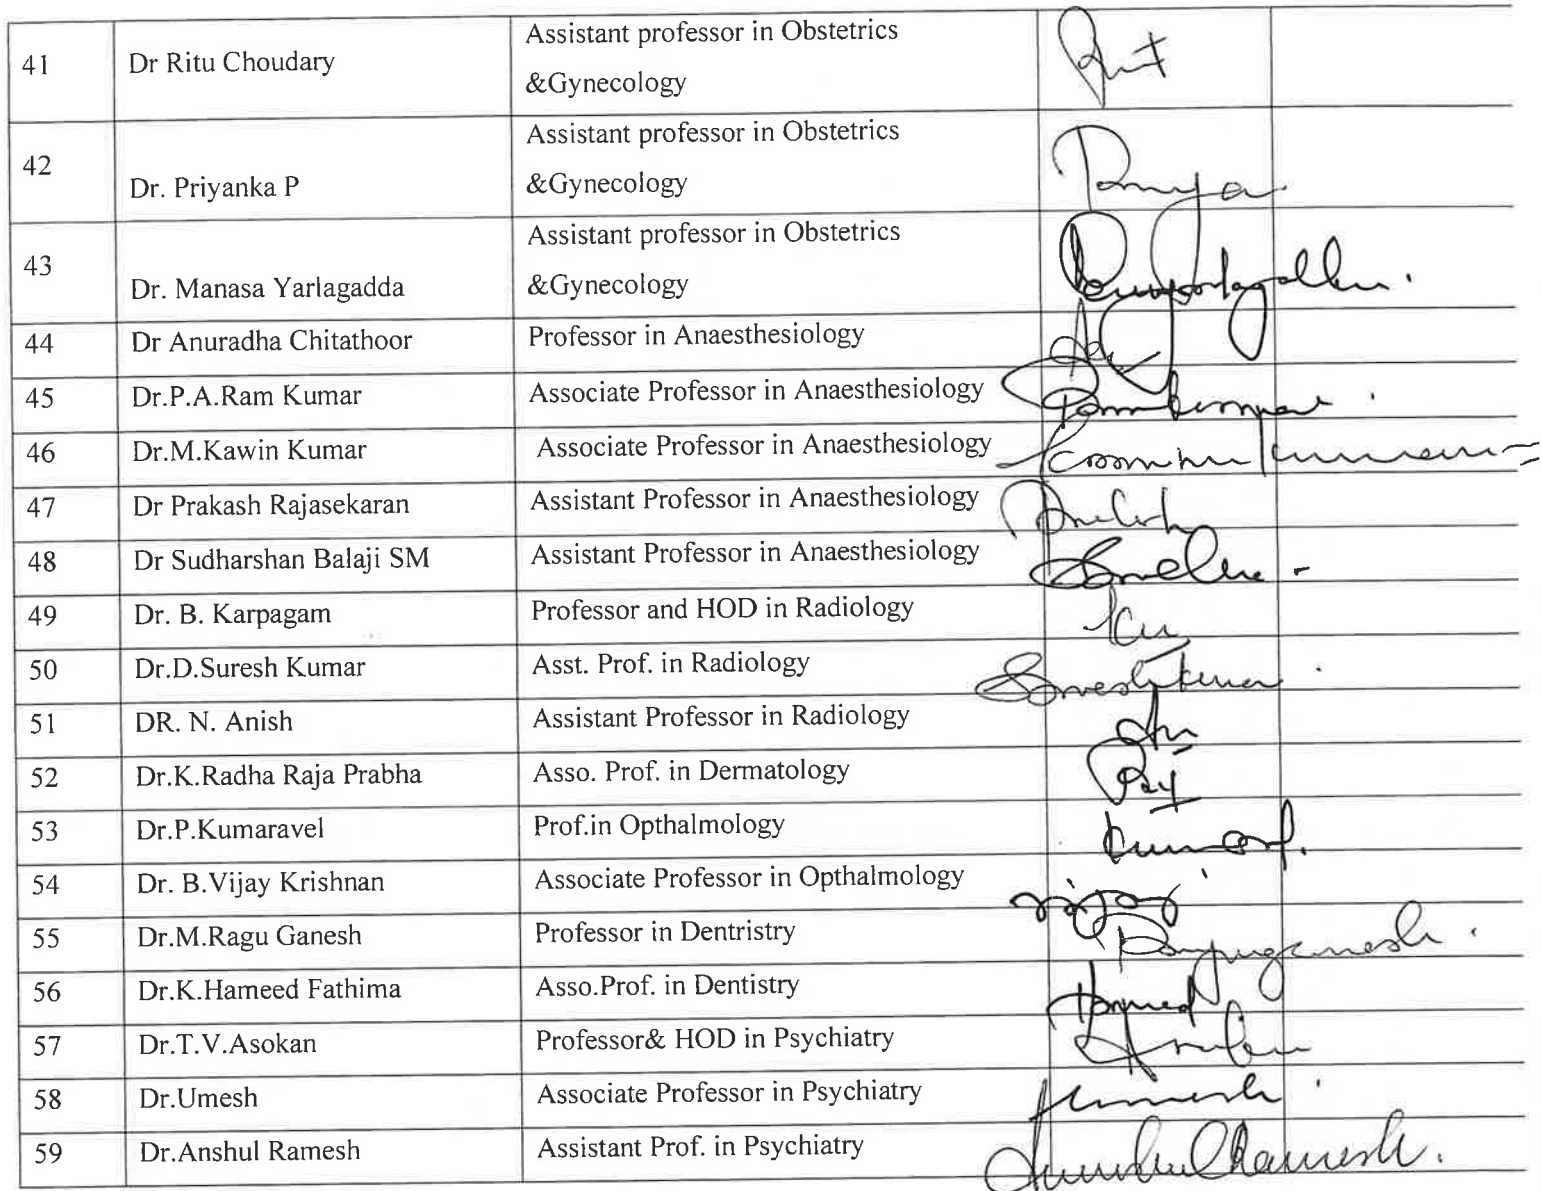 41 Dr Ritu Choudary Assistant professor in Obstetrics
&Gynecology
42 Dr. Priyanka P Assistant professor in Obstetrics
&Gynecology
43 Dr. Manasa Yarlagadda Assistant professor in Obstetrics
&Gynecology
44 Dr Anuradha Chitathoor Professor in Anaesthesiology
45 Dr.P.A.Ram Kumar Associate Professor in Anaesthesiology
46 Dr.M.Kawin Kumar Associate Professor in Anaesthesiology
47 Dr Prakash Rajasekaran Assistant Professor in Anaesthesiology
48 Dr Sudharshan Balaji SM Assistant Professor in Anaesthesiology
49 Dr. B. Karpagam Professor and HOD in Radiology
50 Dr.D.Suresh Kumar Asst. Prof. in Radiology
51 DR. N. Anish Assistant Professor in Radiology
52 Dr.K.Radha Raja Prabha Asso. Prof. in Dermatology
53 Dr.P.Kumaravel Prof.in Opthalmology
54 Dr. B.Vijay Krishnan Associate Professor in Opthalmology
55 Dr.M.Ragu Ganesh Professor in Dentristry
56 Dr.K.Hameed Fathima Asso.Prof. in Dentistry
57 Dr.T.V.Asokan Professor& HOD in Psychiatry
58 Dr.Umesh Associate Professor in Psychiatry
59 Dr.Anshul Ramesh Assistant Prof. in Psychiatry